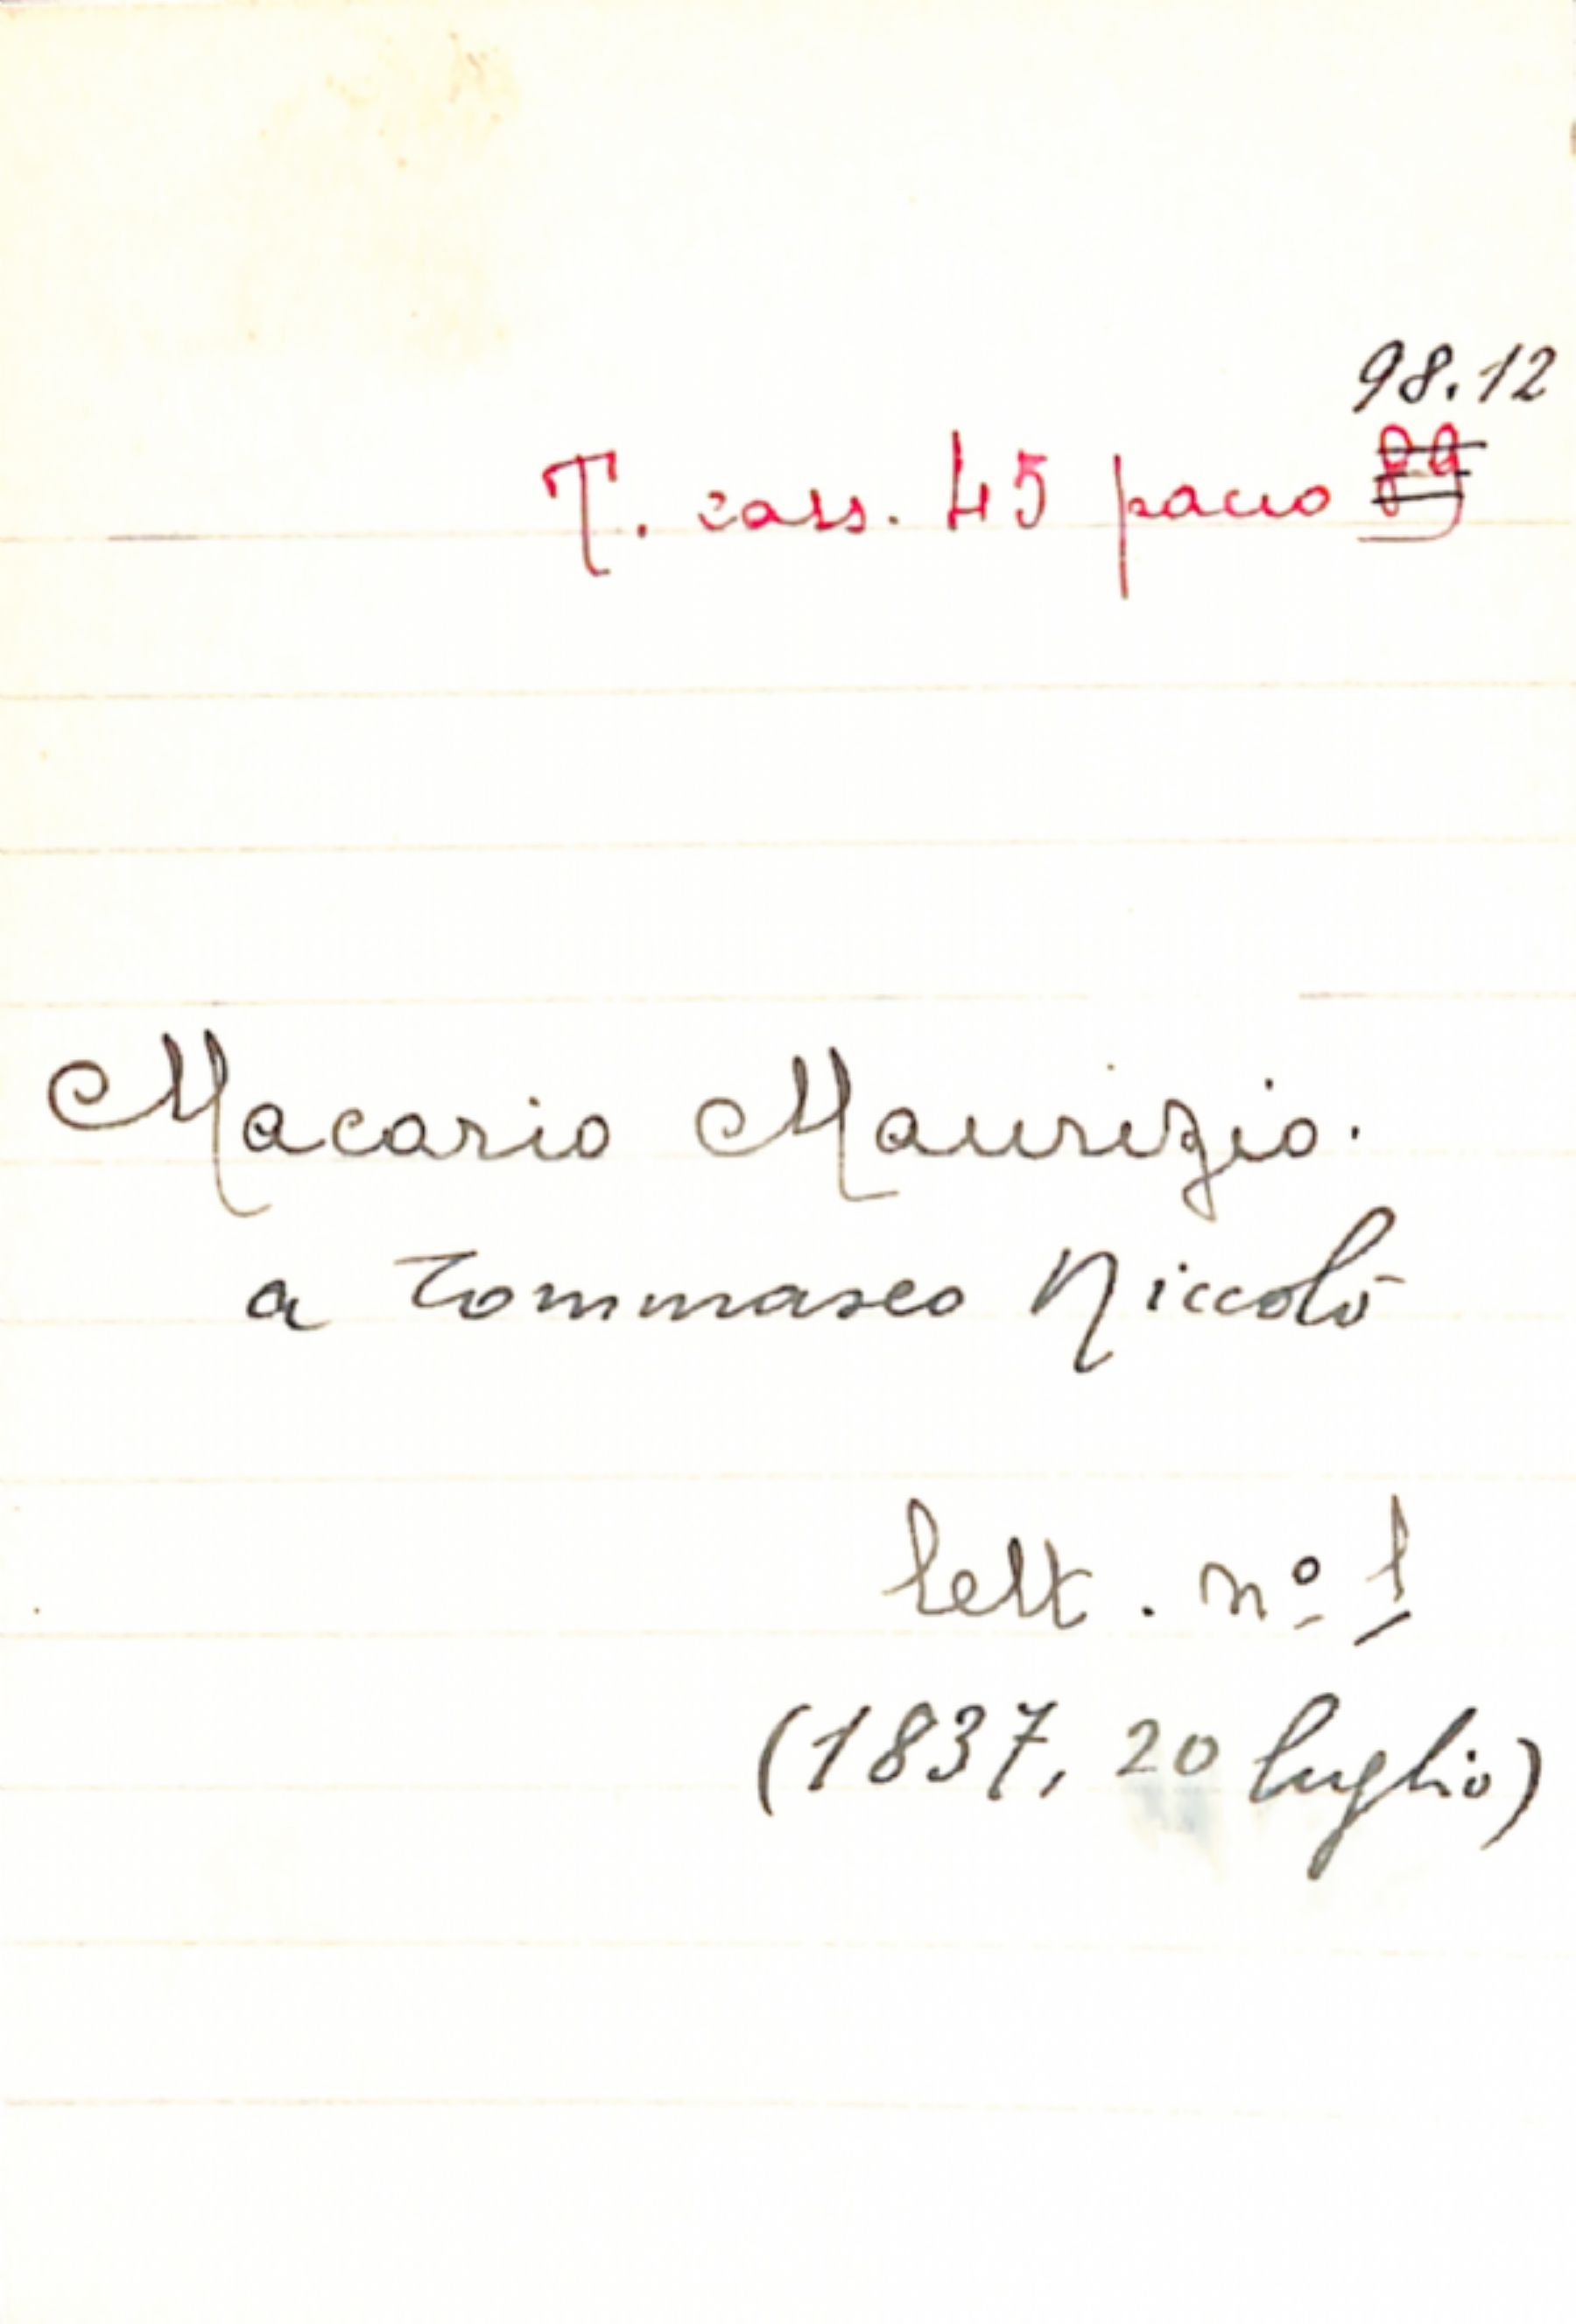 98.12
T. cass. 45 pacco
Macario Maurizio.
a Tommaseo Niccolò
lett. nº 1
(1837, 20 luglio)